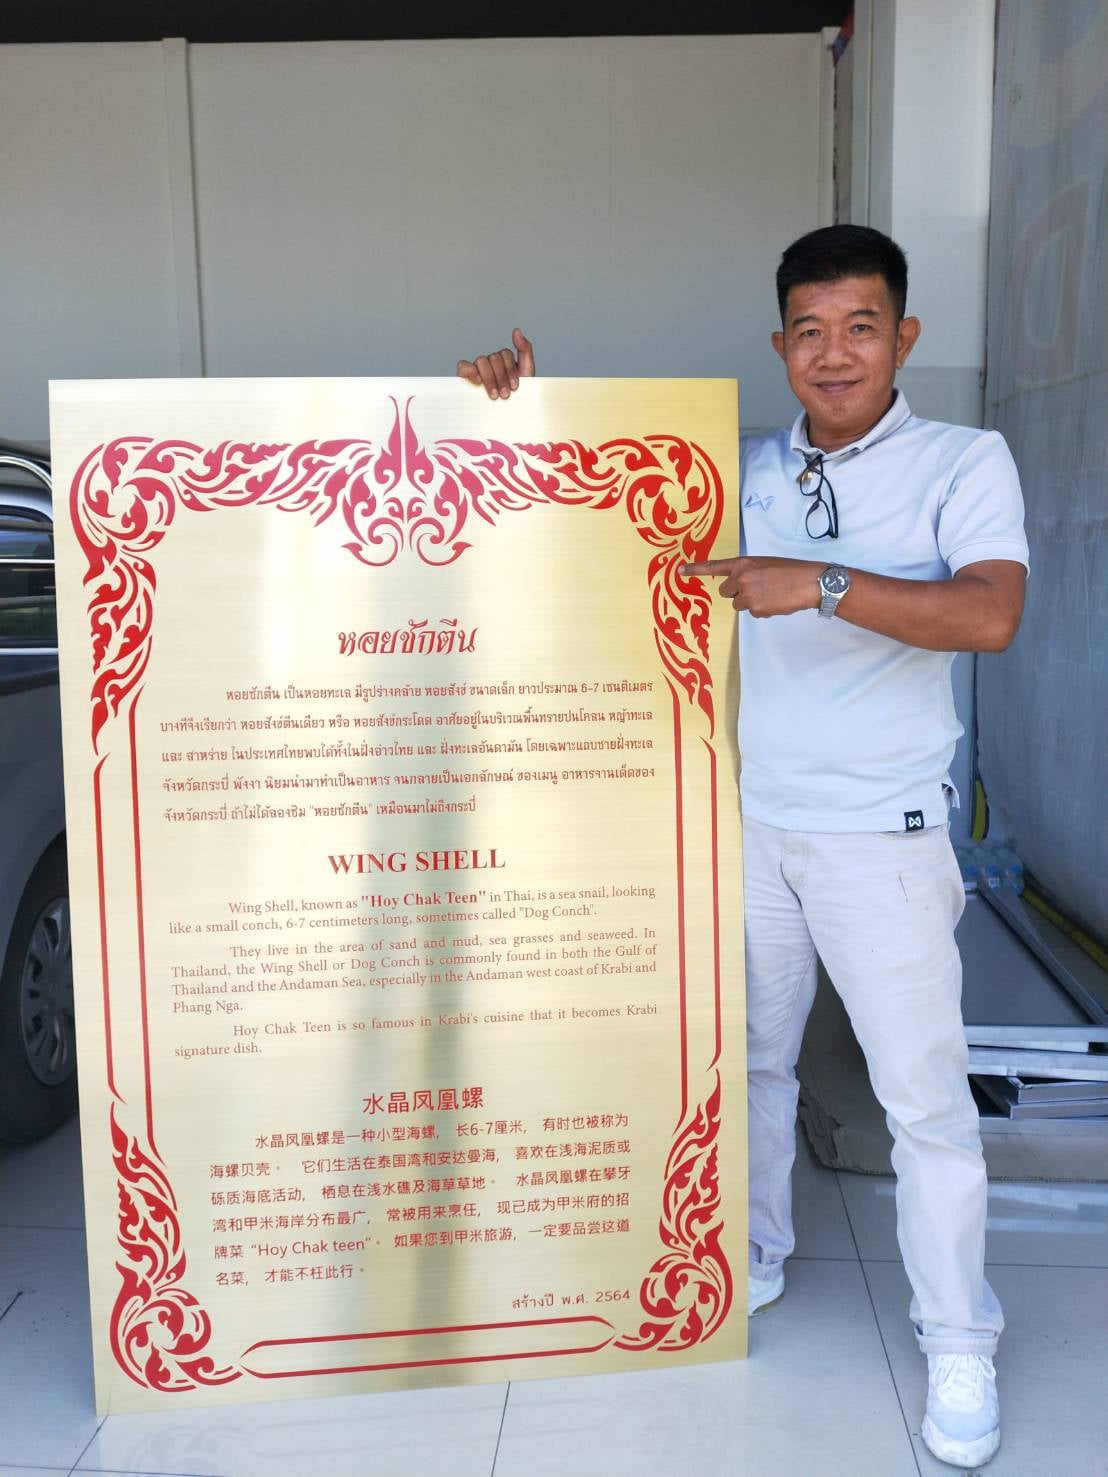 หอยชักตีน
หอยชักตีน เป็นหอยทะเล มีรูปร่างคล้าย หอยสังข์ ขนาดเล็ก ยาวประมาณ 6-7 เซนติเมตร
บางทีจึงเรียกว่า หอยสังข์ตีนเดียว หรือ หอยสังข์กระโดด อาศัยอยู่ในบริเวณพื้นทรายปนโคลน หญ้าทะเล
และ สาหร่าย ในประเทศไทยพบได้ทั้งในฝั่งอ่าวไทย และ ฝั่งทะเลอันดามัน โดยเฉพาะแถบชายฝั่งทะเล
จังหวัดกระบี่ พังงา นิยมนำมาทำเป็นอาหาร จนกลายเป็นเอกลักษณ์ ของเมนู อาหารจานเด็ดของ
จังหวัดกระบี่ ถ้าไม่ได้ลองชิม "หอยชักตีน" เหมือนมาไม่ถึงกระบี่
WING SHELL
Wing Shell, known as "Hoy Chak Teen" in Thai, is a sea snail, looking
like a small conch, 6-7 centimeters long, sometimes called "Dog Conch".
They live in the area of sand and mud, sea grasses and seaweed. In
Thailand, the Wing Shell or Dog Conch is commonly found in both the Gulf of
Thailand and the Andaman Sea, especially in the Andaman west coast of Krabi and
Phang Nga.
Hoy Chak Teen is so famous in Krabi's cuisine that it becomes Krabi
signature dish.
水晶凤凰螺
水晶凤凰螺是一种小型海螺， 长6-7厘米， 有时也被称为
海螺贝壳。 它们生活在泰国湾和安达曼海， 喜欢在浅海泥质或
砾质海底活动， 栖息在浅水礁及海草草地。 水晶凤凰螺在攀牙
湾和甲米海岸分布最广， 常被用来烹任， 现已成为甲米府的招
牌菜 “Hoy Chak teen”。 如果您到甲米旅游， 一定要品尝这道
名菜， 才能不枉此行。
สร้างปี พ.ศ. 2564